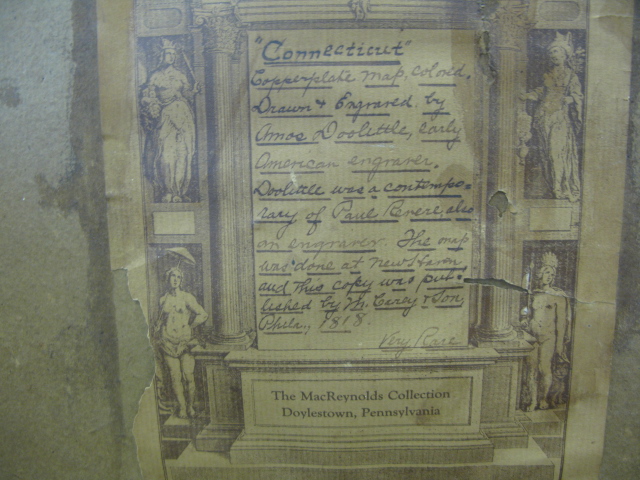 "Connecticut"
Copperplate map, colored.
Drawn & Engraved by
Amos Doolittle, early
American engraver.
Doolittle was a contempo=
rary of Paul Revere, also
an engraver. The map
was done at New Haven,
and this copy was pub=
lished by M. Carey & Son
Phila., 1818.
Very Rare
The MacReynolds Collection
Doylestown, Pennsylvania